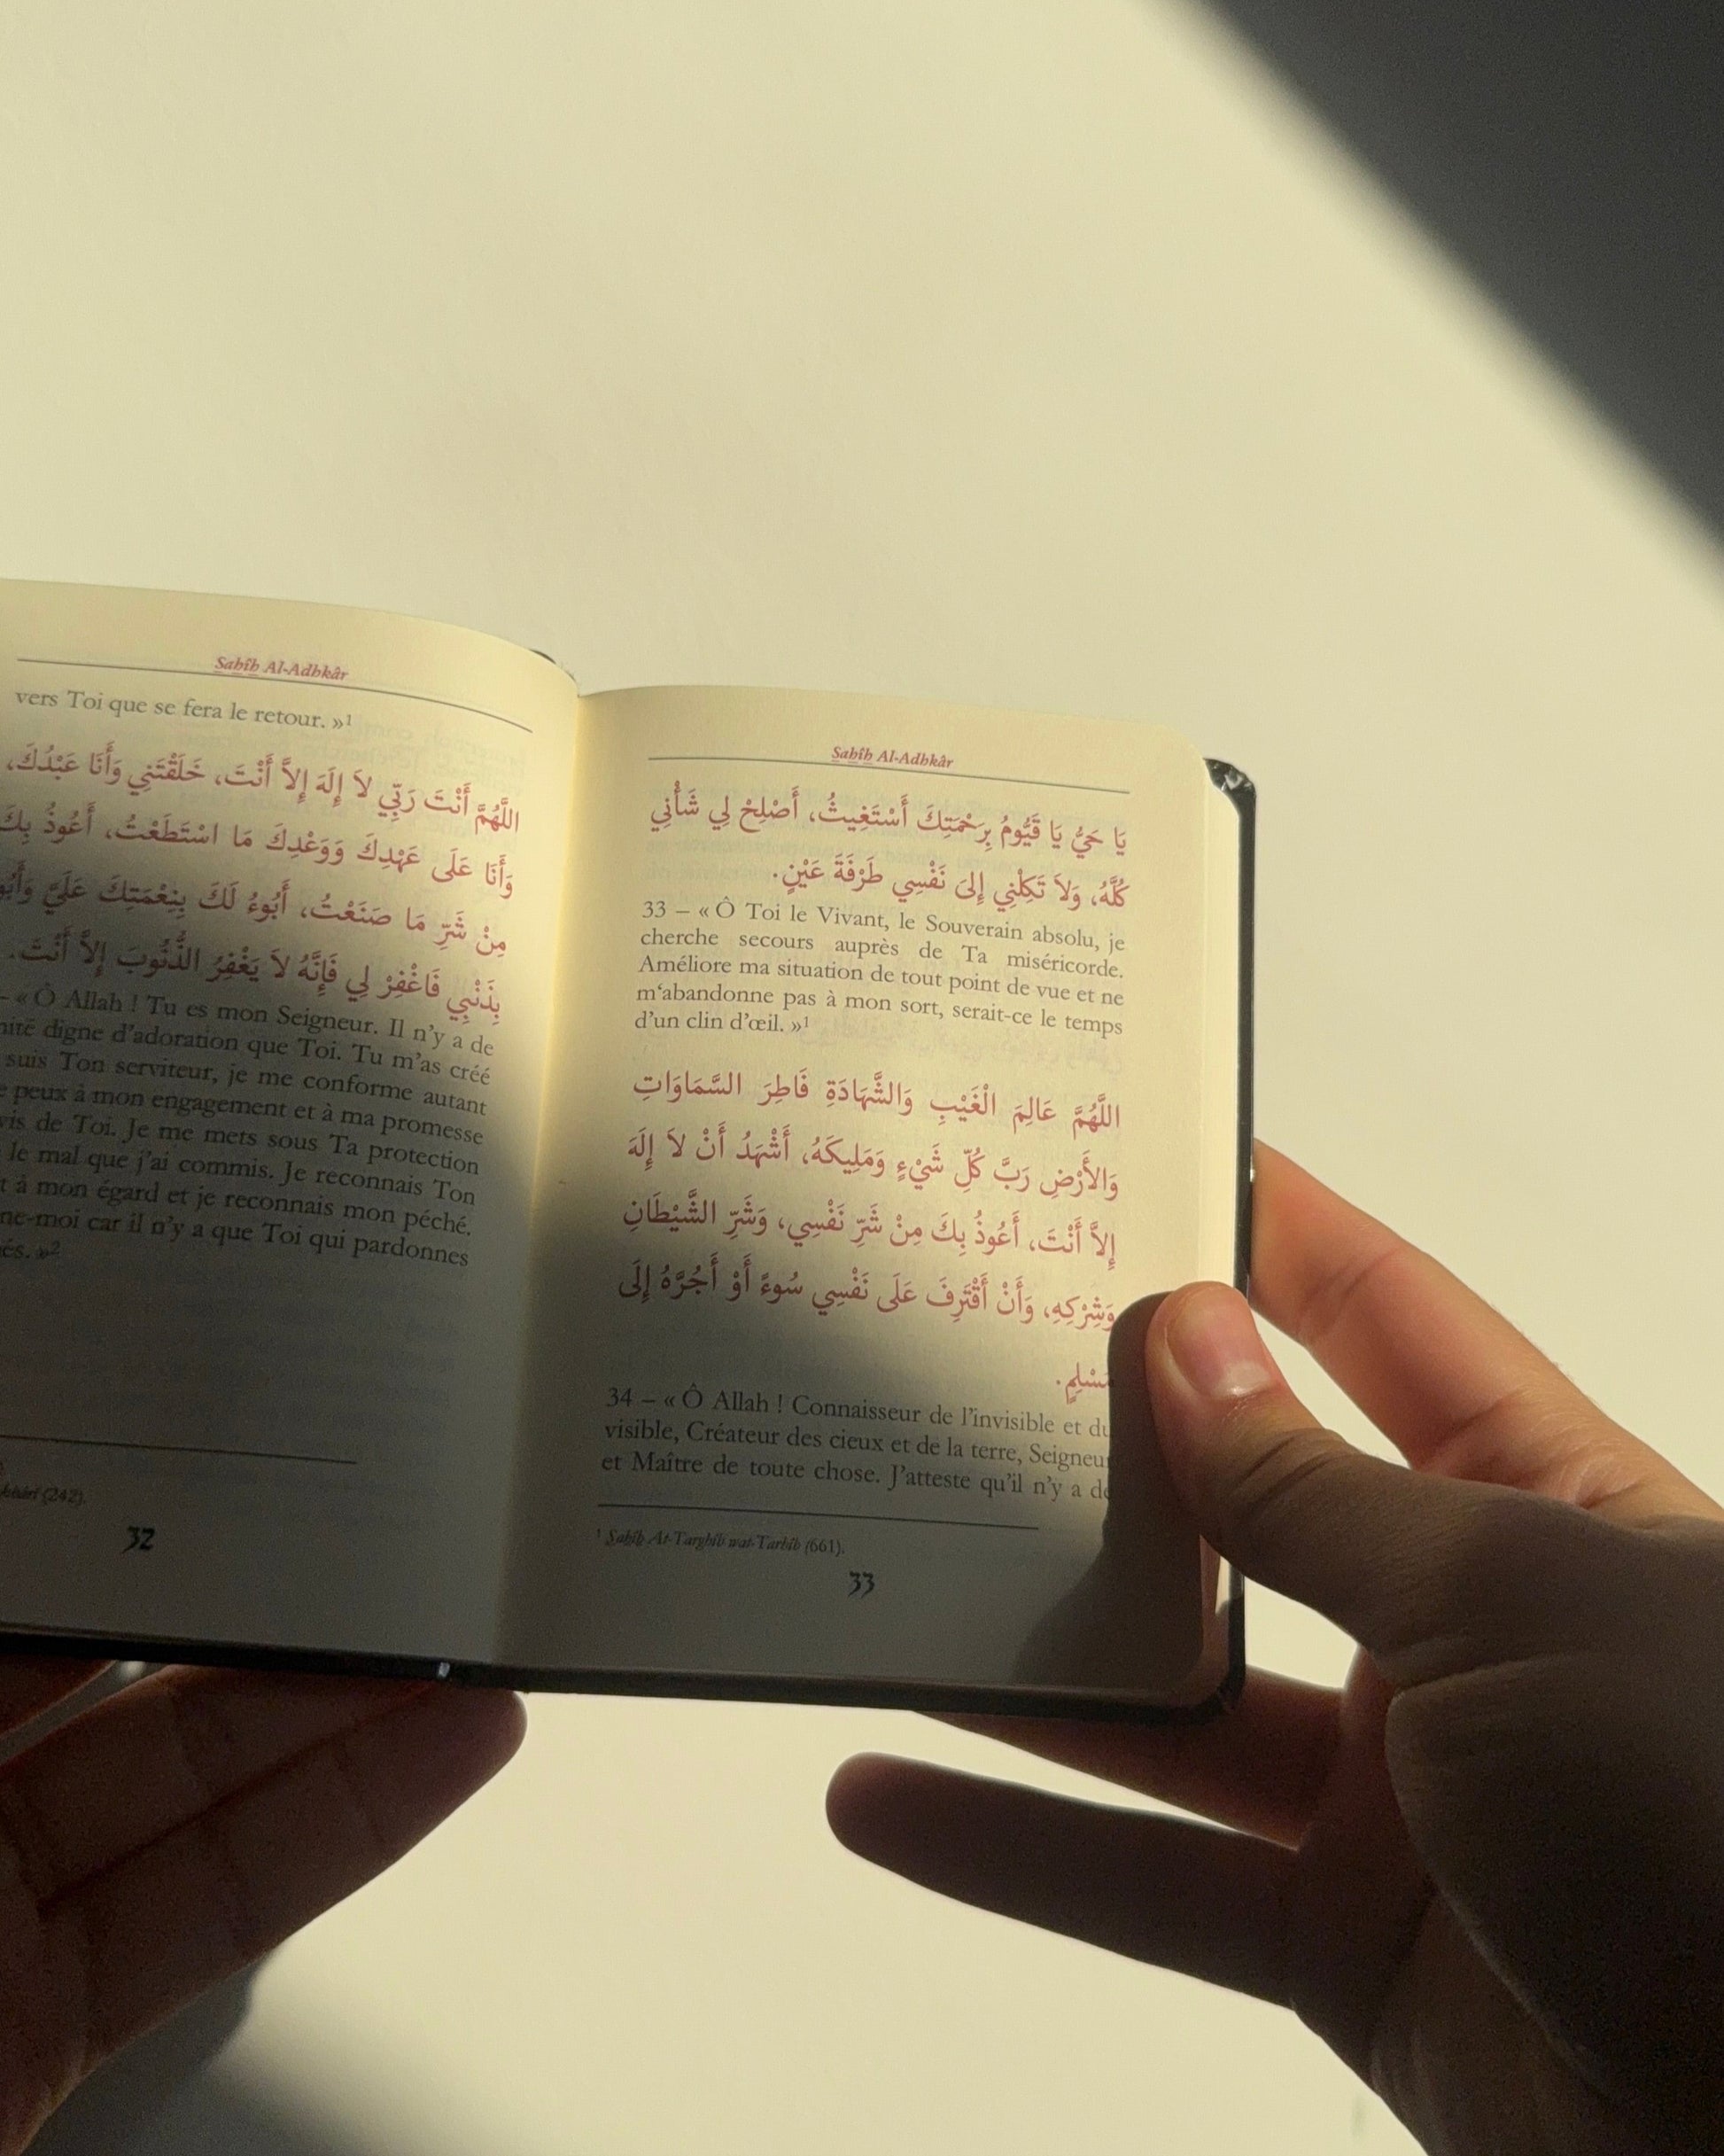 Sahîh Al-Adhkâr
vers Toi que se fera le retour. »¹
اللَّهُمَّ أَنْتَ رَبِّي لاَ إِلَهَ إِلاَّ أَنْتَ، خَلَقْتَنِي وَأَنَا عَبْدُكَ،
وَأَنَا عَلَى عَهْدِكَ وَوَعْدِكَ مَا اسْتَطَعْتُ، أَعُوذُ بِكَ
مِنْ شَرِّ مَا صَنَعْتُ، أَبُوءُ لَكَ بِنِعْمَتِكَ عَلَيَّ
بِذَنْبِي فَاغْفِرْ لِي فَإِنَّهُ لاَ يَغْفِرُ الذُّنُوبَ إِلاَّ أَنْتَ.
– « Ô Allah ! Tu es mon Seigneur. Il n’y a de
digne d’adoration que Toi. Tu m’as créé
suis Ton serviteur, je me conforme autant
peux à mon engagement et à ma promesse
de Toi. Je me mets sous Ta protection
le mal que j’ai commis. Je reconnais Ton
à mon égard et je reconnais mon péché.
ne-moi car il n’y a que Toi qui pardonnes
és. »²
(242).
32
Sahîh Al-Adhkâr
يَا حَيُّ يَا قَيُّومُ بِرَحْمَتِكَ أَسْتَغِيثُ، أَصْلِحْ لِي شَأْنِي
كُلَّهُ، وَلاَ تَكِلْنِي إِلَىَ نَفْسِي طَرْفَةَ عَيْنٍ.
33 – « Ô Toi le Vivant, le Souverain absolu, je
cherche secours auprès de Ta miséricorde.
Améliore ma situation de tout point de vue et ne
m‘abandonne pas à mon sort, serait-ce le temps
d’un clin d’œil. »¹
اللَّهُمَّ عَالِمَ الْغَيْبِ وَالشَّهَادَةِ فَاطِرَ السَّمَاوَاتِ
وَالأَرْضِ رَبَّ كُلِّ شَيْءٍ وَمَلِيكَهُ، أَشْهَدُ أَنْ لاَ إِلَهَ
إِلاَّ أَنْتَ، أَعُوذُ بِكَ مِنْ شَرِّ نَفْسِي، وَشَرِّ الشَّيْطَانِ
وَشِرْكِهِ، وَأَنْ أَقْتَرِفَ عَلَى نَفْسِي سُوءً أَوْ أَجُرَّهُ إِلَى
مُسْلِمٍ.
34 – « Ô Allah ! Connaisseur de l’invisible et du
visible, Créateur des cieux et de la terre, Seigneur
et Maître de toute chose. J’atteste qu’il n’y a de
¹ Sahîh At-Targhîb wat-Tarhîb (661).
33